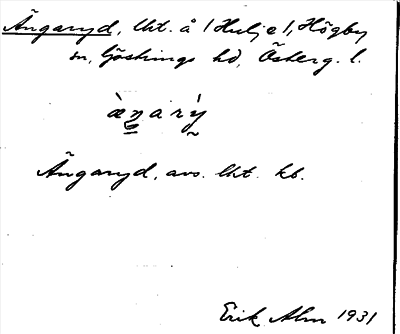 Ängaryd, lht. å /Hulje/, Högby
sn, Göstrings hd, Österg. l.
àŋarỳ
Ängaryd, avs. lht. kb.
Erik Alm 1931